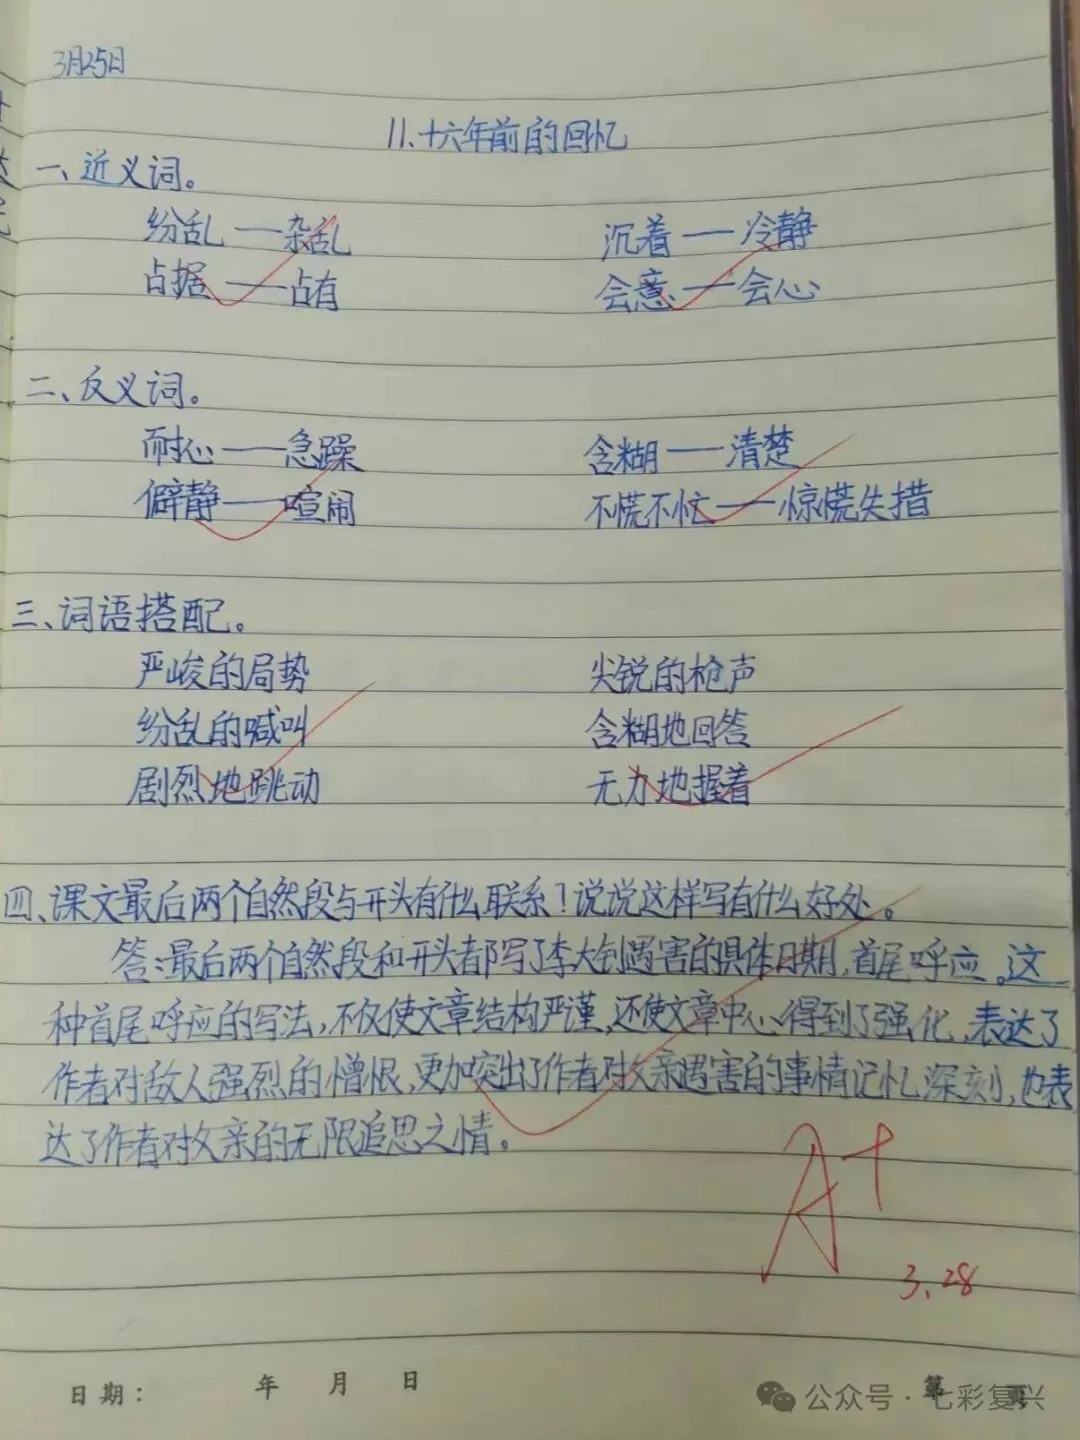 3月25日
11、十六年前的回忆
一、近义词。
纷乱——杂乱 沉着——冷静
占据——占有 会意——会心
二、反义词。
耐心——急躁 含糊——清楚
僻静——喧闹 不慌不忙——惊慌失措
三、词语搭配。
严峻的局势 尖锐的枪声
纷乱的喊叫 含糊地回答
剧烈地跳动 无力地握着
四、课文最后两个自然段与开头有什么联系!说说这样写有什么好处。
答:最后两个自然段和开头都写了李大钊遇害的具体日期,首尾呼应。这
种首尾呼应的写法,不仅使文章结构严谨,还使文章中心得到了强化,表达了
作者对敌人强烈的憎恨,更加突出了作者对父亲遇害的事情记忆深刻,也表
达了作者对父亲的无限追思之情。
A+
3.28
日期: 年 月 日 第 页
公众号·七彩复兴